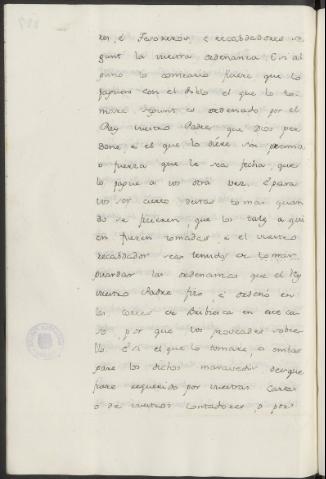 res, é Tesoreros, é recabdadores se
gunt la vuestra ordenanza. E si al
guno lo contrario fisiere que lo
paguen con el doblo el que lo to
mare, segunt es ordenado por el
Rey vuestro Padre que Dios per
done, é el que lo diere sin premia
o fuerza que le sea fecha, que
lo pague a vos otra vez. E para
vos ser cierto destas tomas quan
do se ficieren, que los tales a qui
en fueren tomados, é el vuestro
recabdador sean tenudos de tomar
guardar las ordenanzas que el Rey
vuestro Padre fizo, é ordenó en
las cortes de Bribiesca en este ca
so, por que vos proveades sobre
llo. E si el que lo tomare, o embar
gare los dichos maravedis desque
fuere requerido por vuestras Cartas
o de vuestros contadores, o por